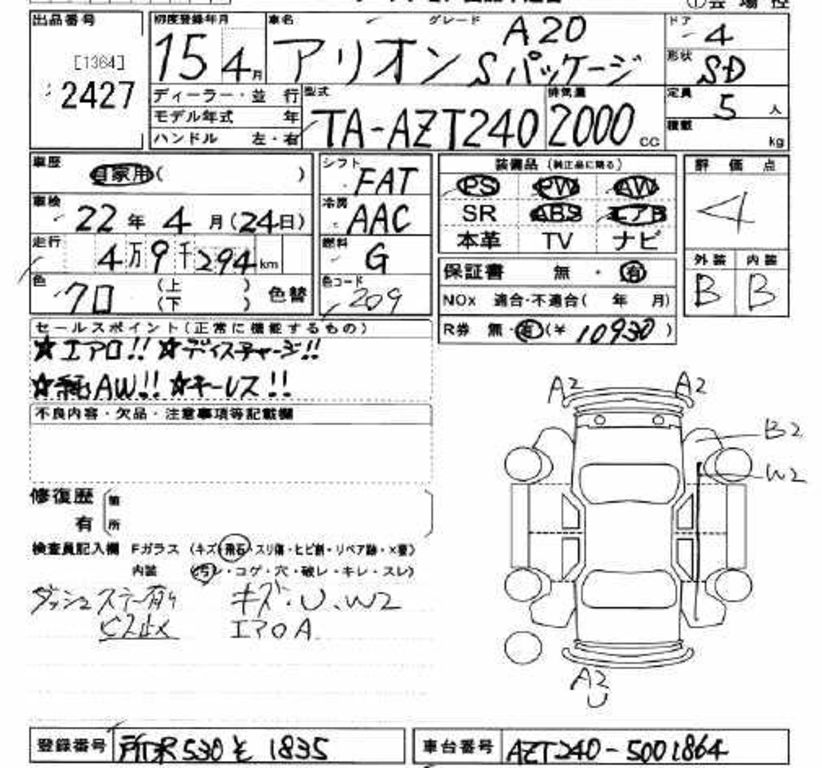 出品番号
[1364]
2427
初度登録年月
15 4月
車名 グレード
アリオン A20
Sパッケージ
ドア 4
形状 SD
定員 5 人
積載 kg
ディーラー・並 行
モデル年式 年
ハンドル 左・右
型式 TA-AZT240
排気量 2000 cc
車歴 自家用( )
車検 22年4月(24日)
走行 4万9千294km
色 クロ (上 下) 色替
シフト FAT
冷房 AAC
燃料 G
色コード 209
装備品(純正品に限る)
PS PW AW
SR ABS エアB
本革 TV ナビ
保証書 無・有
NOx 適合・不適合( 年 月)
R券 無・有(¥10930)
評価点
4
外装 内装
B B
セールスポイント(正常に機能するもの)
★エアロ!! ★ディスチャージ!!
★純AW!! ★キーレス!!
不良内容・欠品・注意事項等記載欄
修復歴 箇
有 所
検査員記入欄 Fガラス (キズ・飛石・スリ傷・ヒビ割・リペア跡・×要)
内装 (汚レ・コゲ・穴・破レ・キレ・スレ)
ダッシュ ステー有り キズ・U、W2
ビス止メ エアロA
A2 A2
B2
W2
A2
U
登録番号 所沢530 1835
車台番号 AZT240-5001864